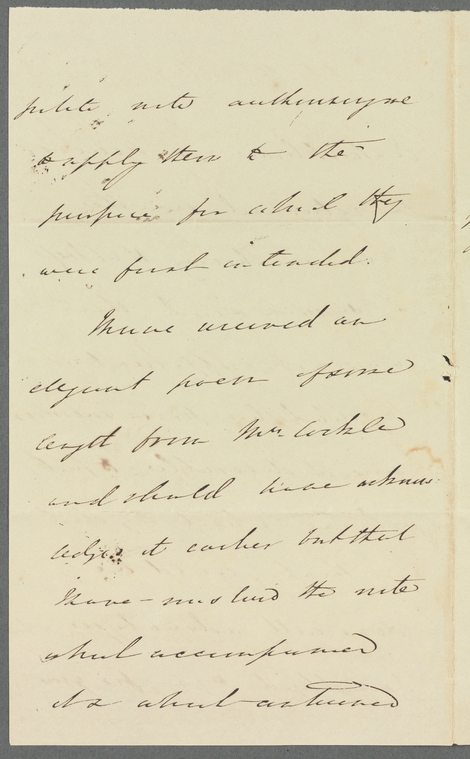 polite note authorising me
to apply them to the
purpose for which they
were first intended.
I have received an
elegant poem of some
length from Mrs Cockle
and should have acknow
ledged it earlier but that
I have mislaid the note
which accompanied
it & which contained